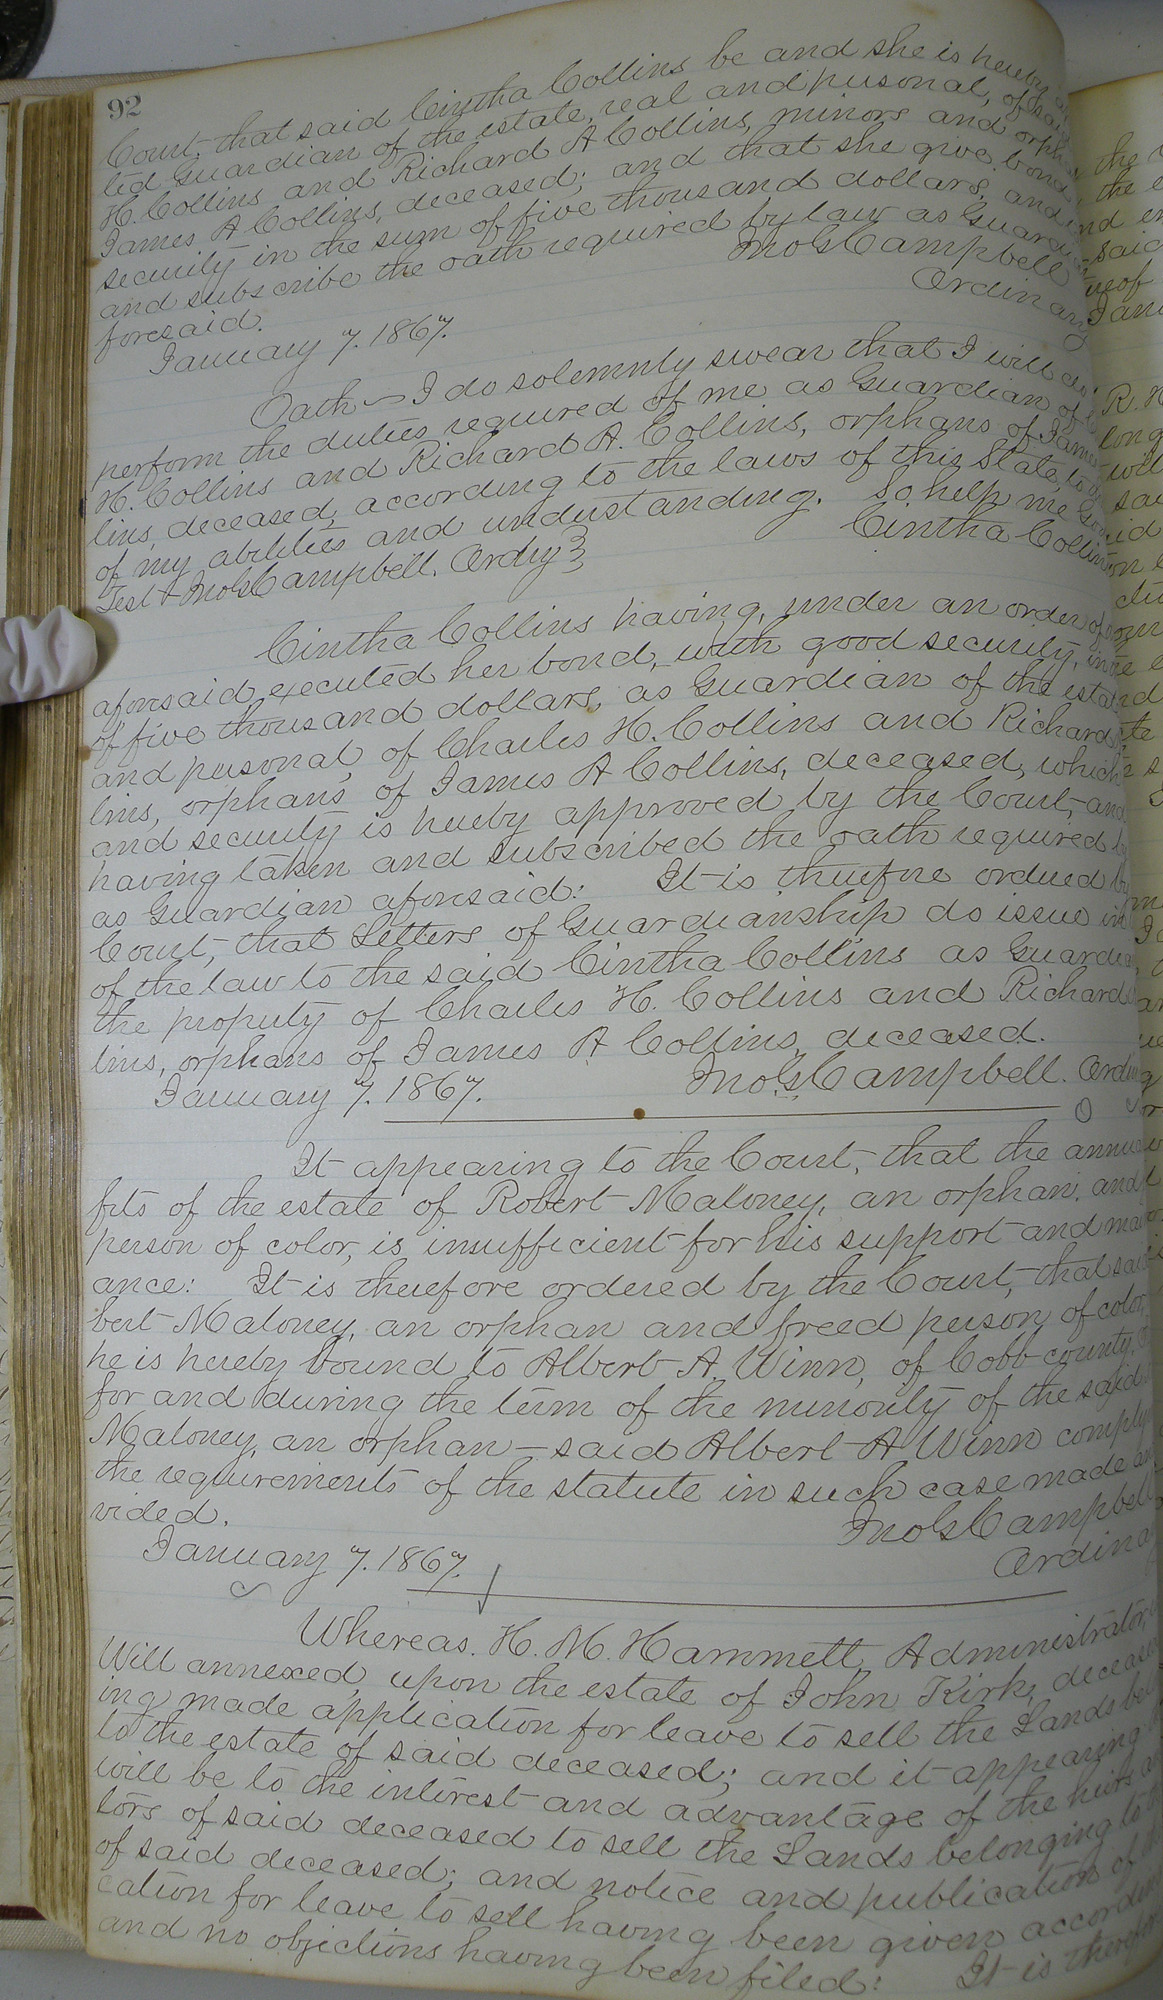 92
Court, that said Cintha Collins be and she is hereby
ted Guardian of the estate, real and personal, of
H. Collins and Richard A Collins, minors and orph
James A Collins, deceased; and that she give bond
security in the sum of five thousand dollars, and
and subscribe the oath required by law as Guardi
foresaid. Jno G Campbell
January 7. 1867. Ordinary
Oath — I do solemnly swear that I will
perform the duties required of me as Guardian of
H. Collins and Richard A. Collins, orphans of Jame
lins, deceased, according to the laws of this State, to
of my abilities and understanding. So help me God
Test Jno G Campbell. Ordry } Cintha Collins
Cintha Collins having, under an order of
aforesaid, executed her bond, with good security, in
of five thousand dollars, as Guardian of the esta
and personal, of Charles H. Collins and Richard
lins, orphans of James A Collins, deceased, which
and security is hereby approved by the Court, and
having taken and subscribed the oath required
as Guardian aforesaid: It is therefore ordered
Court, that Letters of Guardianship do issue in
of the law to the said Cintha Collins as Guardia
the property of Charles H. Collins and Richard
lins, orphans of James A Collins, deceased.
January 7. 1867. Jno G Campbell. Ordin
It appearing to the Court, that the annu
fits of the estate of Robert Maloney, an orphan, and
person of color, is insufficient for his support and main
ance: It is therefore ordered by the Court, that said
bert Maloney, an orphan and freed person of color,
he is hereby bound to Albert A. Winn, of Cobb county,
for and during the term of the minority of the said
Maloney, an orphan — said Albert A Winn comply
the requirements of the statute in such case made an
vided. Jno G Campbell
January 7. 1867. Ordina
Whereas, H. M. Hammett, Administrator,
Will annexed, upon the estate of John Kirk, deceased
ing made application for leave to sell the Lands be
to the estate of said deceased; and it appearing
will be to the interest and advantage of the heirs
tors of said deceased to sell the Lands belonging to
of said deceased; and notice and publication of
cation for leave to sell having been given accord
and no objections having been filed: It is therefor